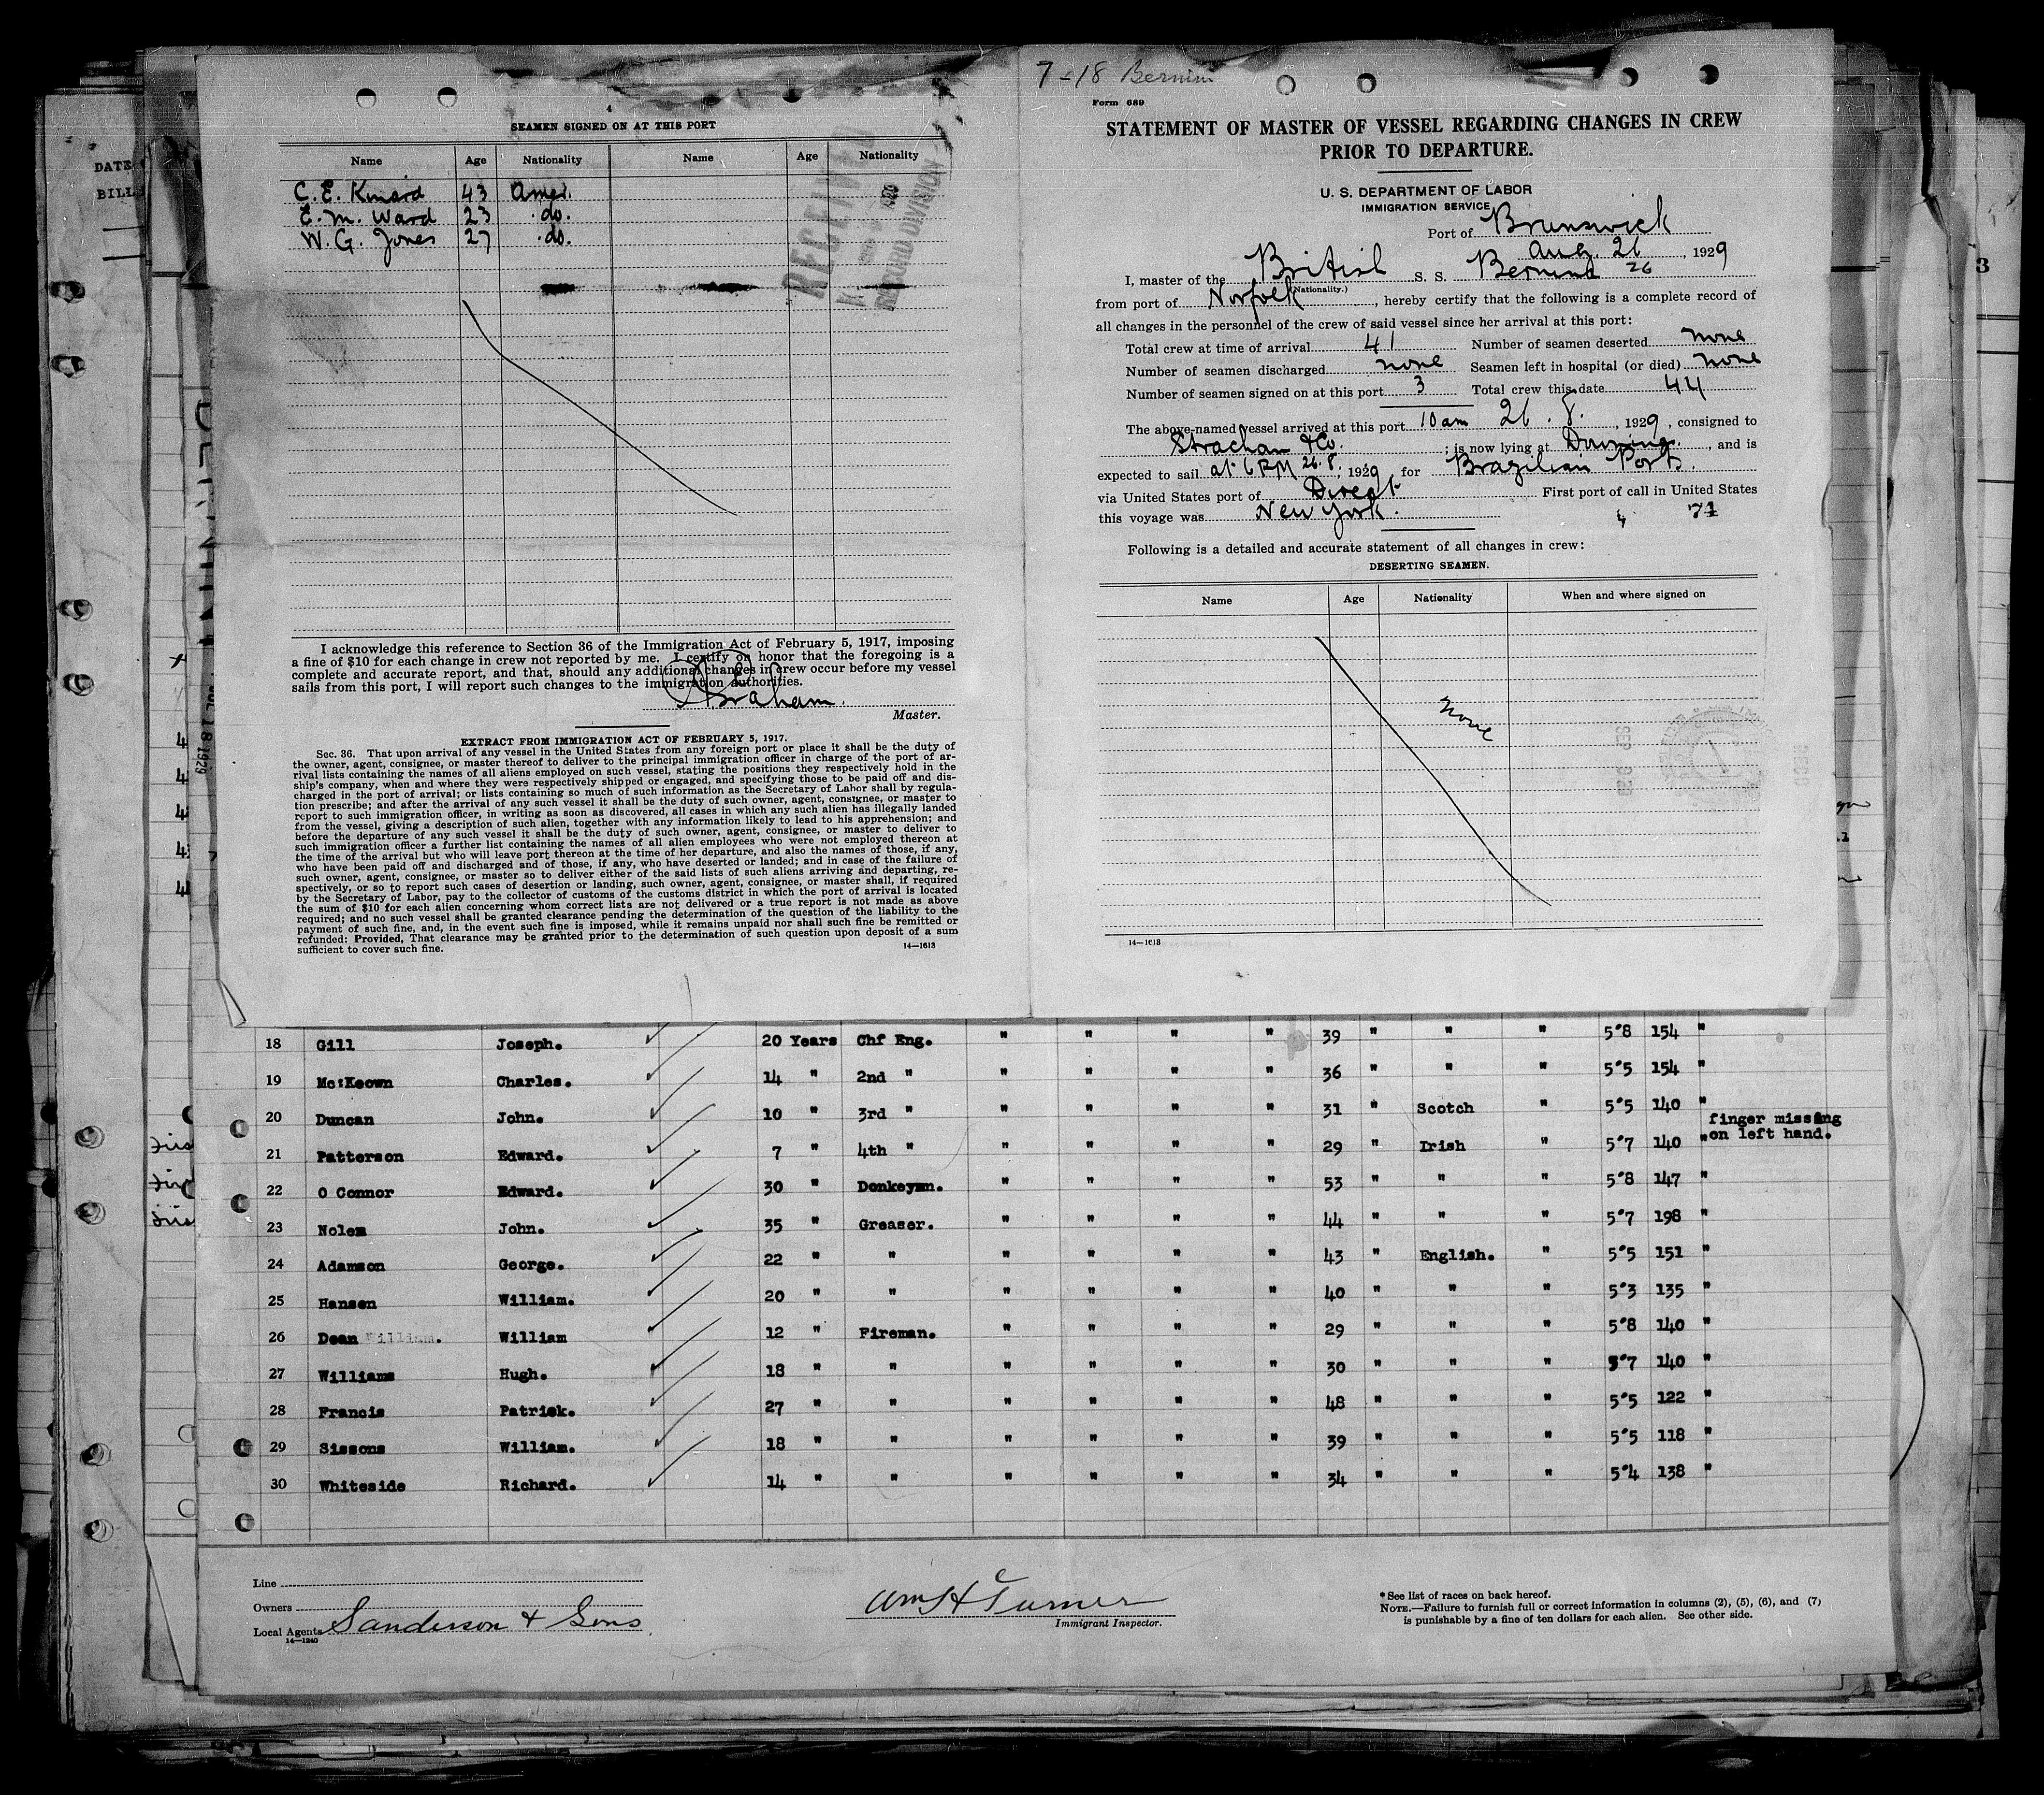 DATE
BILL
4
SEAMEN SIGNED ON AT THIS PORT
Name Age Nationality Name Age Nationality
C. E. Kinard 43 Amer.
E. M. Ward 23 do.
W. G. Jones 27 do.
RECEIVED
RECORD DIVISION
I acknowledge this reference to Section 36 of the Immigration Act of February 5, 1917, imposing
a fine of $10 for each change in crew not reported by me. I certify on honor that the foregoing is a
complete and accurate report, and that, should any additional changes in crew occur before my vessel
sails from this port, I will report such changes to the immigration authorities.
Graham.
Master.
EXTRACT FROM IMMIGRATION ACT OF FEBRUARY 5, 1917.
Sec. 36. That upon arrival of any vessel in the United States from any foreign port or place it shall be the duty of
the owner, agent, consignee, or master thereof to deliver to the principal immigration officer in charge of the port of ar-
rival lists containing the names of all aliens employed on such vessel, stating the positions they respectively hold in the
ship's company, when and where they were respectively shipped or engaged, and specifying those to be paid off and dis-
charged in the port of arrival; or lists containing so much of such information as the Secretary of Labor shall by regula-
tion prescribe; and after the arrival of any such vessel it shall be the duty of such owner, agent, consignee, or master to
report to such immigration officer, in writing as soon as discovered, all cases in which any such alien has illegally landed
from the vessel, giving a description of such alien, together with any information likely to lead to his apprehension; and
before the departure of any such vessel it shall be the duty of such owner, agent, consignee, or master to deliver to
such immigration officer a further list containing the names of all alien employees who were not employed thereon at
the time of the arrival but who will leave port thereon at the time of her departure, and also the names of those, if any,
who have been paid off and discharged and of those, if any, who have deserted or landed; and in case of the failure of
such owner, agent, consignee, or master so to deliver either of the said lists of such aliens arriving and departing, re-
spectively, or so to report such cases of desertion or landing, such owner, agent, consignee, or master shall, if required
by the Secretary of Labor, pay to the collector of customs of the customs district in which the port of arrival is located
the sum of $10 for each alien concerning whom correct lists are not delivered or a true report is not made as above
required; and no such vessel shall be granted clearance pending the determination of the question of the liability to the
payment of such fine, and, in the event such fine is imposed, while it remains unpaid nor shall such fine be remitted or
refunded: Provided, That clearance may be granted prior to the determination of such question upon deposit of a sum
sufficient to cover such fine.
14—1613
7-18 Bernini
Form 689
STATEMENT OF MASTER OF VESSEL REGARDING CHANGES IN CREW
PRIOR TO DEPARTURE.
U. S. DEPARTMENT OF LABOR
IMMIGRATION SERVICE
Port of Brunswick
Aug. 26, 1929
I, master of the British S. S. Bernini 26
(Nationality.)
from port of Norfolk, hereby certify that the following is a complete record of
all changes in the personnel of the crew of said vessel since her arrival at this port:
Total crew at time of arrival 41 Number of seamen deserted none
Number of seamen discharged none Seamen left in hospital (or died) none
Number of seamen signed on at this port 3 Total crew this date 44
The above-named vessel arrived at this port 10 am 26. 8., 1929, consigned to
Strachan & Co.; is now lying at Downing, and is
expected to sail at 6 PM 26.8. 1929 for Brazilian Ports.
via United States port of Direct First port of call in United States
this voyage was New York.
4 71
Following is a detailed and accurate statement of all changes in crew:
DESERTING SEAMEN.
Name Age Nationality When and where signed on
none
14—1613
18 Gill Joseph. 20 Years Chf Eng. " " " " 39 " " " 5"8 154 "
19 Mc:Keown Charles. 14 " 2nd " " " " " 36 " " " 5"5 154 "
20 Duncan John. 10 " 3rd " " " " " 31 " Scotch " 5"5 140 "
finger missing
21 Patterson Edward. 7 " 4th " " " " " 29 " Irish " 5"7 140 " on left hand.
22 O Connor Edward. 30 " Donkeymn. " " " " 53 " " " 5"8 147 "
23 Nolem John. 35 " Greaser. " " " " 44 " " " 5"7 198 "
24 Adamson George. 22 " " " " " " 43 " English. " 5"5 151 "
25 Hansen William. 20 " " " " " " 40 " " " 5"3 135 "
26 Dean William. William 12 " Fireman. " " " " 29 " " " 5"8 140 "
27 Williams Hugh. 18 " " " " " " 30 " " " 5"7 140 "
28 Francis Patrick. 27 " " " " " " 48 " " " 5"5 122 "
29 Sissons William. 18 " " " " " " 39 " " " 5"5 118 "
30 Whiteside Richard. 14 " " " " " " 34 " " " 5"4 138 "
Line
Owners
Local Agents Sanderson & Sons.
14—1240
Wm H Turner
Immigrant Inspector.
* See list of races on back hereof.
NOTE.—Failure to furnish full or correct information in columns (2), (5), (6), and (7)
is punishable by a fine of ten dollars for each alien. See other side.